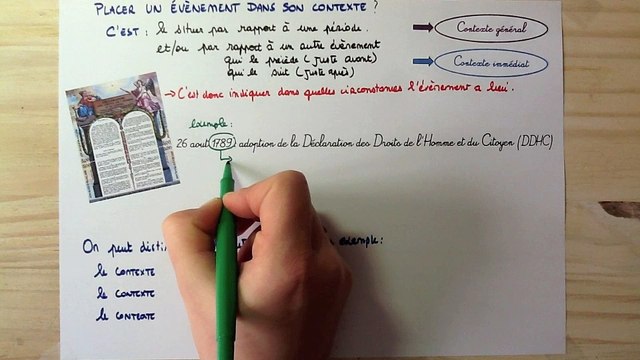 PLACER UN ÉVÈNEMENT DANS SON CONTEXTE ?
C'EST : le situer par rapport à une période.
et/ou par rapport à un autre évènement
qui le précède (juste avant)
qui le suit (juste après)
Contexte général
Contexte immédiat
→ C'est donc indiquer dans quelles circonstances l'évènement a lieu.
exemple :
26 aout 1789 adoption de la Déclaration des Droits de l'Homme et du Citoyen (DDHC)
On peut exemple :
le CONTEXTE
le CONTEXTE
le CONTEXTE